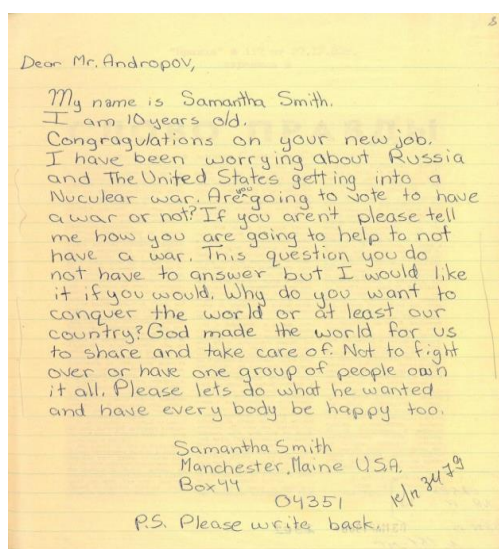 Dear Mr. Andropov,
My name is Samantha Smith.
I am 10 years old.
Congragulations on your new job.
I have been worrying about Russia
and The United States getting into a
Nuculear war. Are you going to vote to have
a war or not? If you aren't please tell
me how you are going to help to not
have a war. This question you do
not have to answer but I would like
it if you would. Why do you want to
conquer the world or at least our
country? God made the world for us
to share and take care of. Not to fight
over or have one group of people own
it all. Please lets do what he wanted
and have every body be happy too.
Samantha Smith
Manchester, Maine USA.
Box 44
04351
P.S. Please write back.